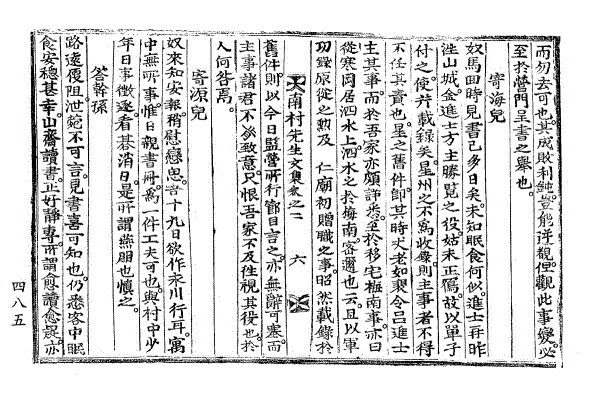 而勿去可也其成敗利鈍豈能逆覩但觀此事變必
至於營門呈書之擧也
寄海兒
奴馬回時見書已多日矣未知眠食何似進士再昨
往山城金進士方主勝覽之役姑未正寫故以單子
付之使幷載錄矣星州之不爲收錄則主事者不得
不任其責也星之舊件卽其時丈老如裴令呂進士
主其事而於吾家亦頗詳悉至於移宅梅南事亦曰
從寒岡居泗水上泗水之於梅南密邇也云且以軍
功錄原從之勲及 仁廟初贈職之事昭然載錄於
大南村先生文集卷之二 六
舊件則以今日監營所行節目言之亦無辭可塞而
主事諸君不必致意只恨吾家不及往視其役也於
人何咎焉
寄源兒
奴來知安報稍慰戀思 十九日欲作永川行耳寓
中無所事惟日親書冊爲一件工夫可也與村中少
年日事徵逐看碁消日是所謂燕朋也愼之
答幹孫
路遠覆阻泄菀不可言見書喜可知也仍悉客中眠
食安穩甚幸山齋讀書正好靜專所謂愈讀愈疑亦
四八五